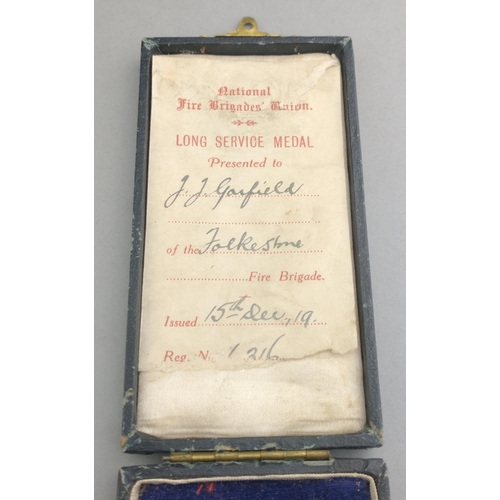 National
Fire Brigades' Union.
LONG SERVICE MEDAL
Presented to
J. J. Garfield
of the Folkestone
Fire Brigade.
Issued 15th Dec, 19.
Reg. N